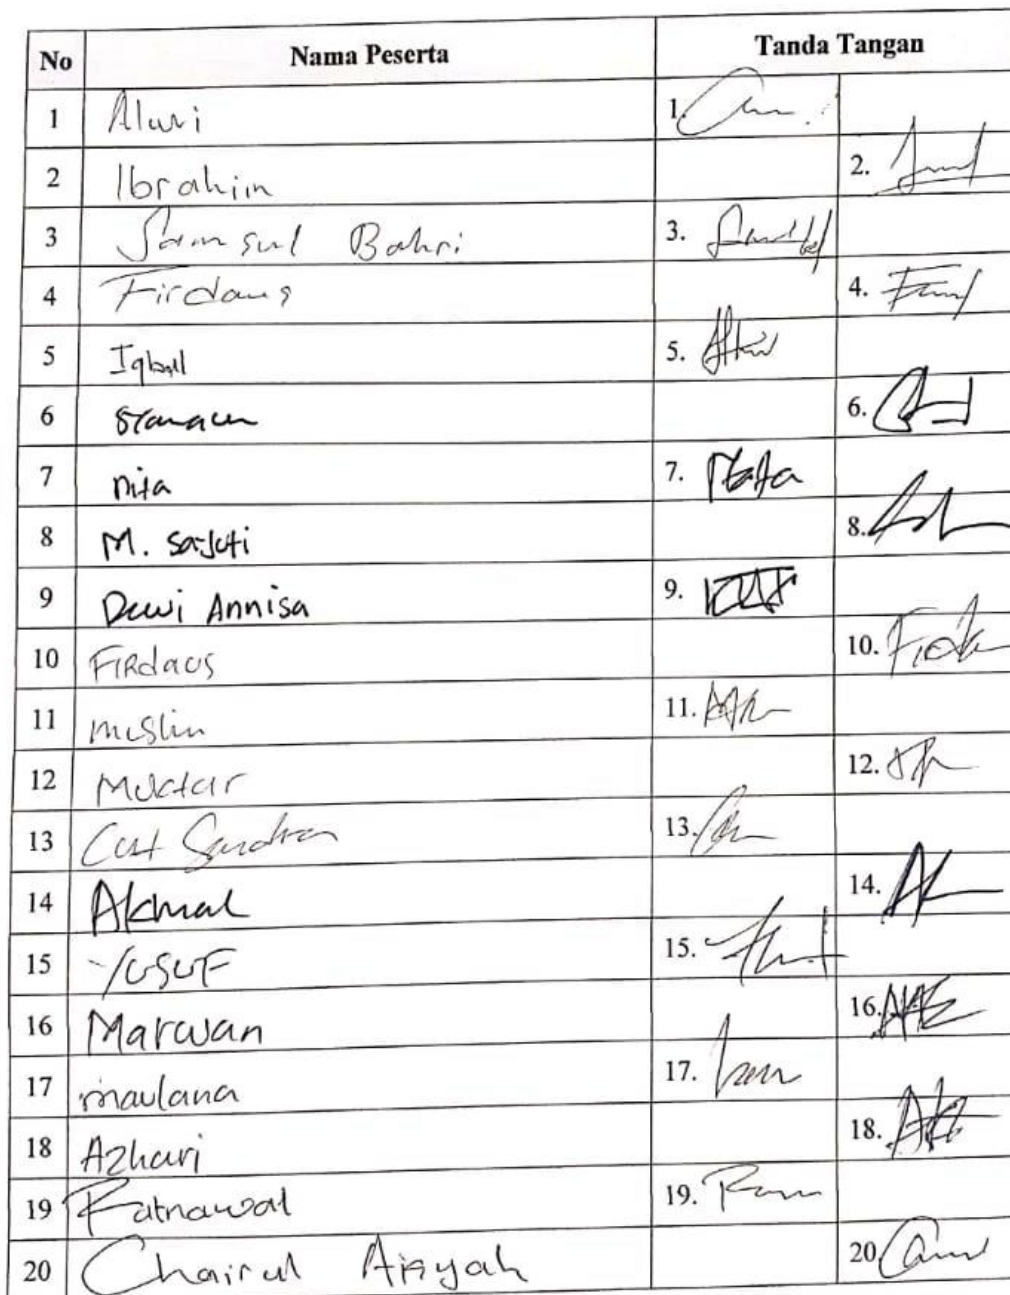 No Nama Peserta Tanda Tangan
1 Alwi 1.
2 Ibrahim 2.
3 Samsul Bahri 3.
4 Firdaus 4.
5 Iqball 5.
6 6.
7 nita 7.
8 M. 8.
9 Dewi Annisa 9.
10 FIRdaus 10.
11 muslim 11.
12 Muktar 12.
13 Cut 13.
14 Akmal 14.
15 YusuF 15.
16 Marwan 16.
17 maulana 17.
18 Azhari 18.
19 Ratnawat 19.
20 Chairul Aisyah 20.